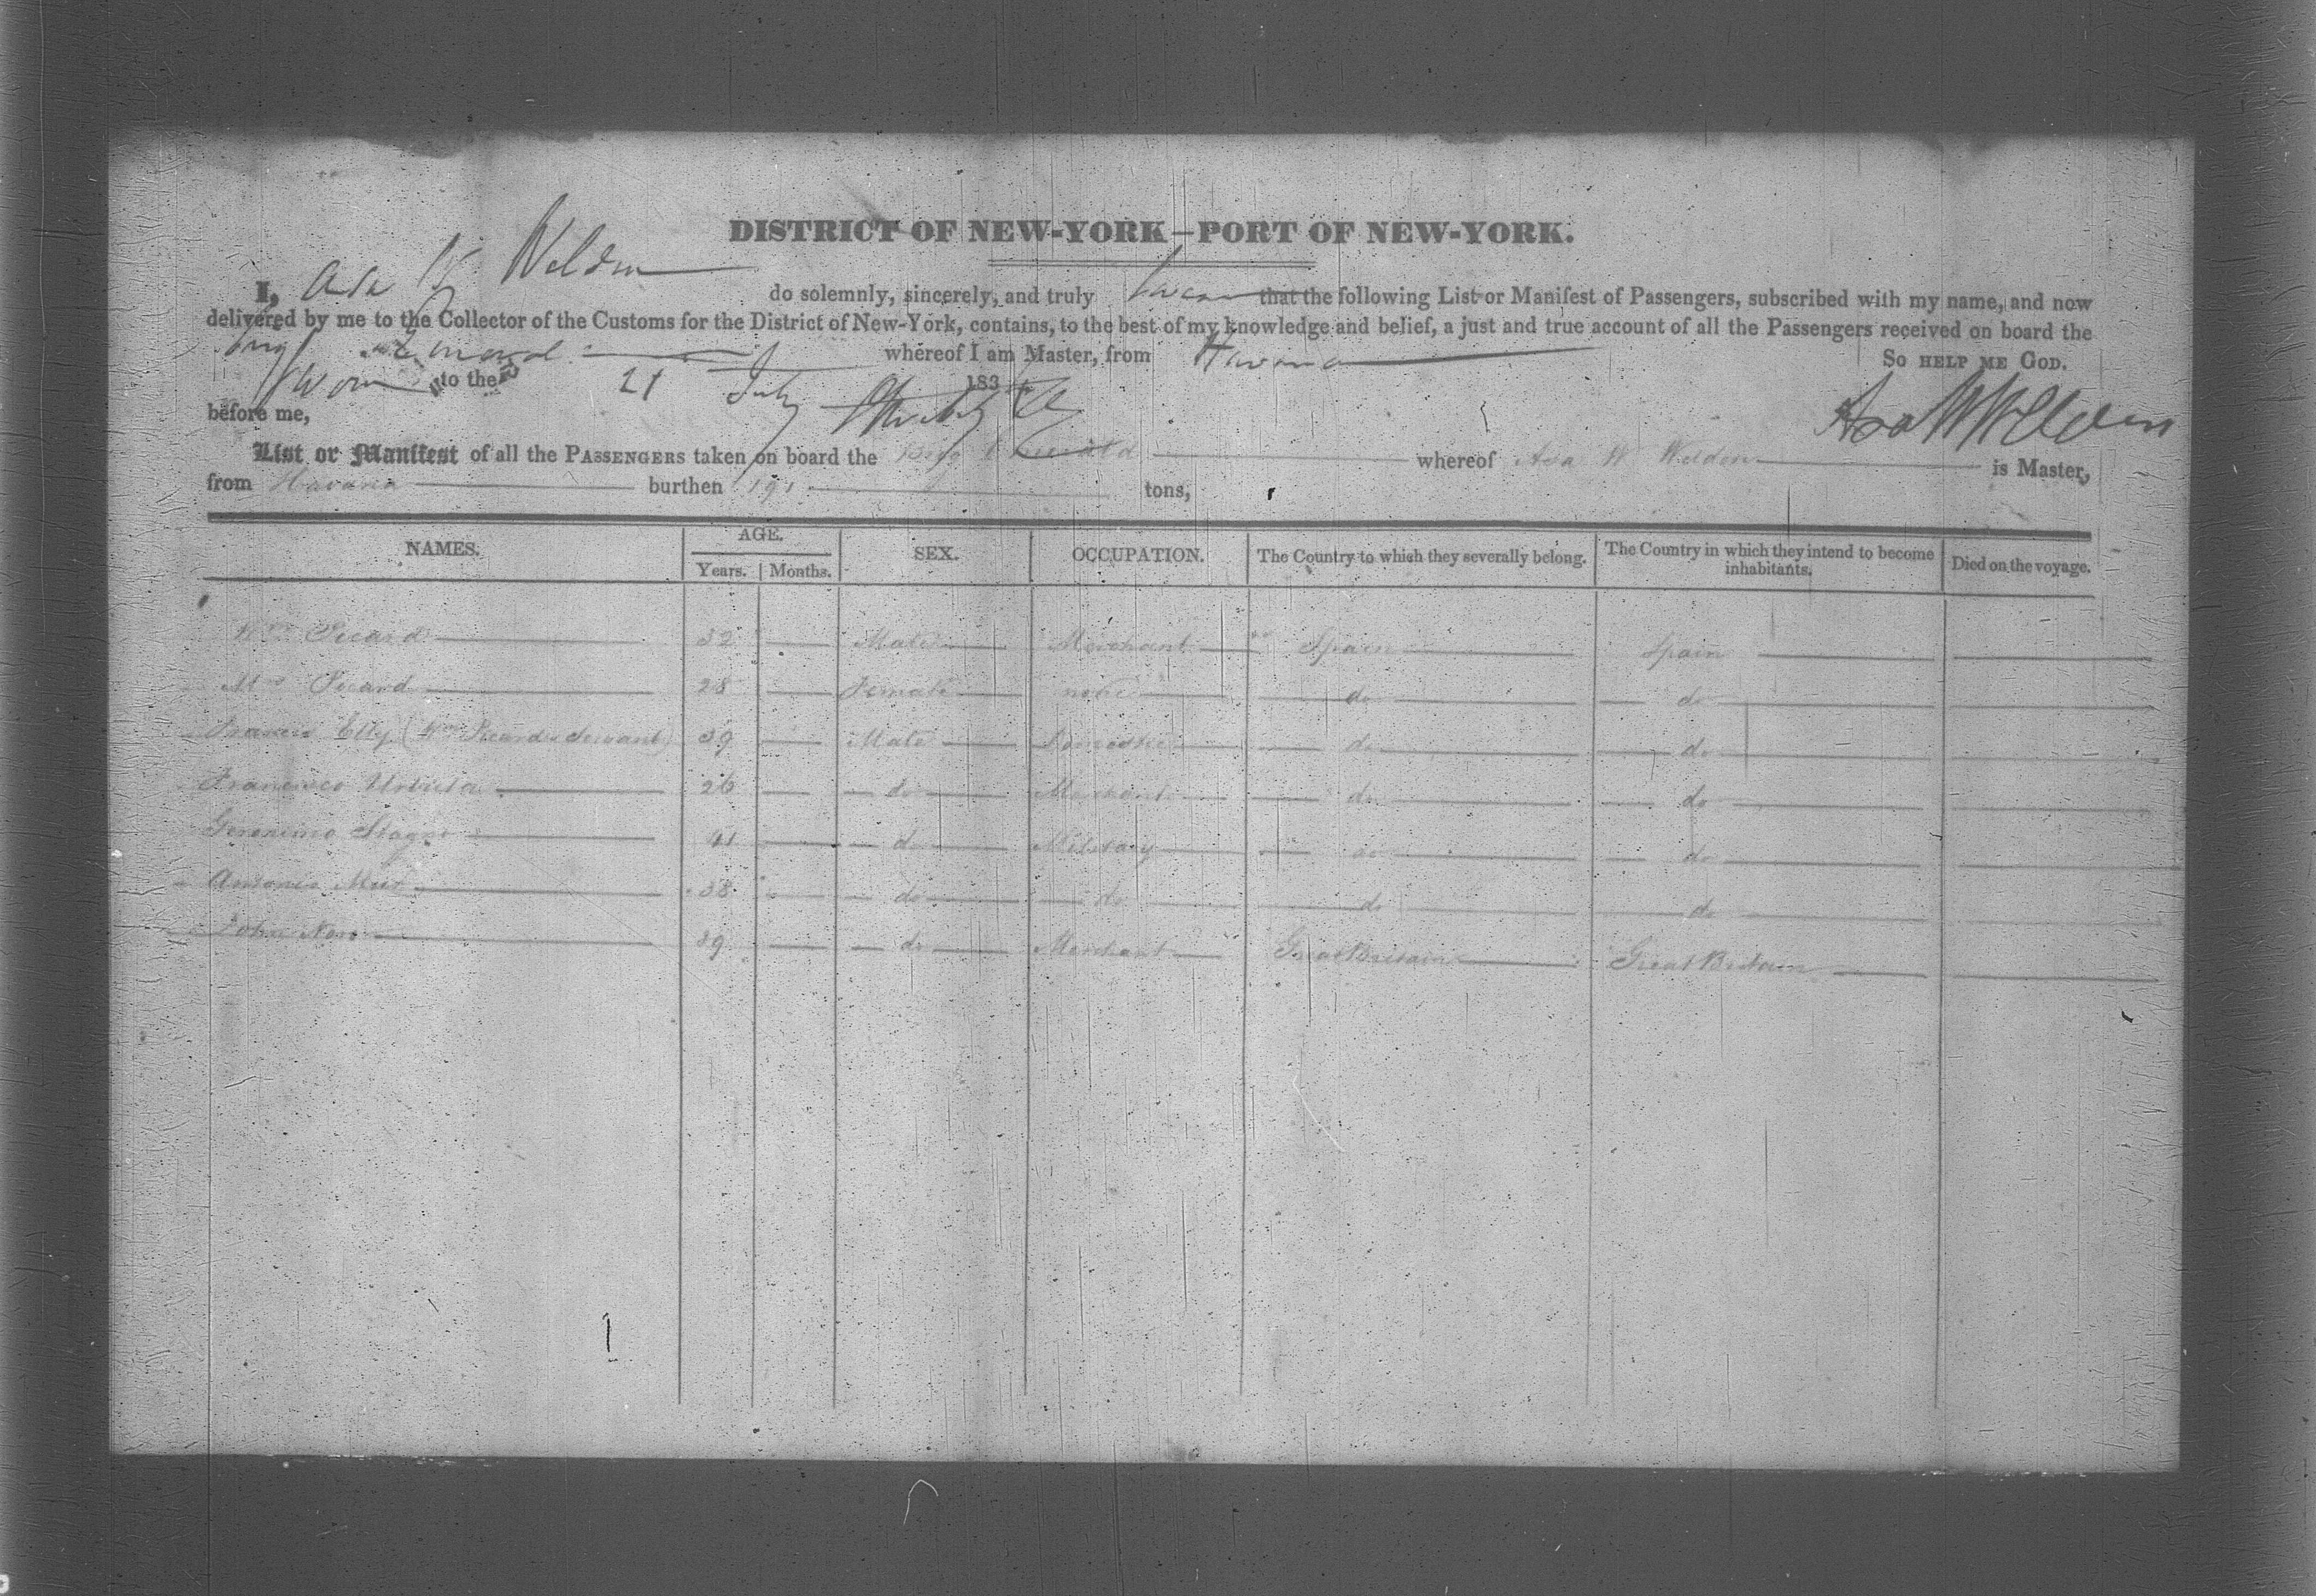 DISTRICT OF NEW-YORK—PORT OF NEW-YORK.
I, Asa W Weldon do solemnly, sincerely, and truly swear that the following List or Manifest of Passengers, subscribed with my name, and now
delivered by me to the Collector of the Customs for the District of New-York, contains, to the best of my knowledge and belief, a just and true account of all the Passengers received on board the
Brig whereof I am Master, from Havana So HELP ME GOD.
Sworn to the 21 July 183
before me, Asa W Weldon
List or Manifest of all the PASSENGERS taken on board the Brig whereof Asa W Weldon is Master,
from Havana burthen 191 tons,
NAMES. AGE. SEX. OCCUPATION. The Country to which they severally belong. The Country in which they intend to become inhabitants. Died on the voyage.
Years. Months.
Wm Picard 32 Male Merchant Spain Spain
Mrs Picard 28 Female none do do
Francis Elly (Wm Picards Servant) 39 Male Domestic do do
Francisco 26 do Merchant do do
Geronimo 41 do Military do do
Antonio 38 do do do do
John 39 do Merchant Great Britain Great Britain